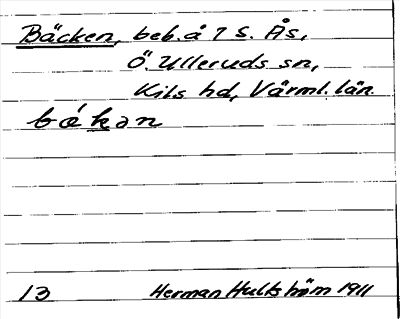 Bäcken, beb. å 7 S. Ås,
Ö. Ulleruds sn,
Kils hd, Värml. län
bákan
13 Herman Hultström 1911